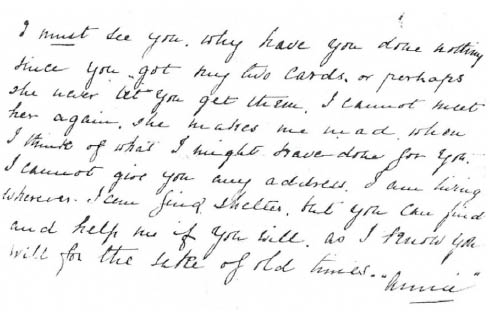 I must see you. why have you done nothing
since you got my two cards. or perhaps
she never let you get them. I cannot meet
her again. she makes me mad. when
I think of what I might have done for you.
I cannot give you any address. I am living
wherever I can find shelter. but you can find
and help me if you will. as I know you
will for the sake of old times.. "Annie"